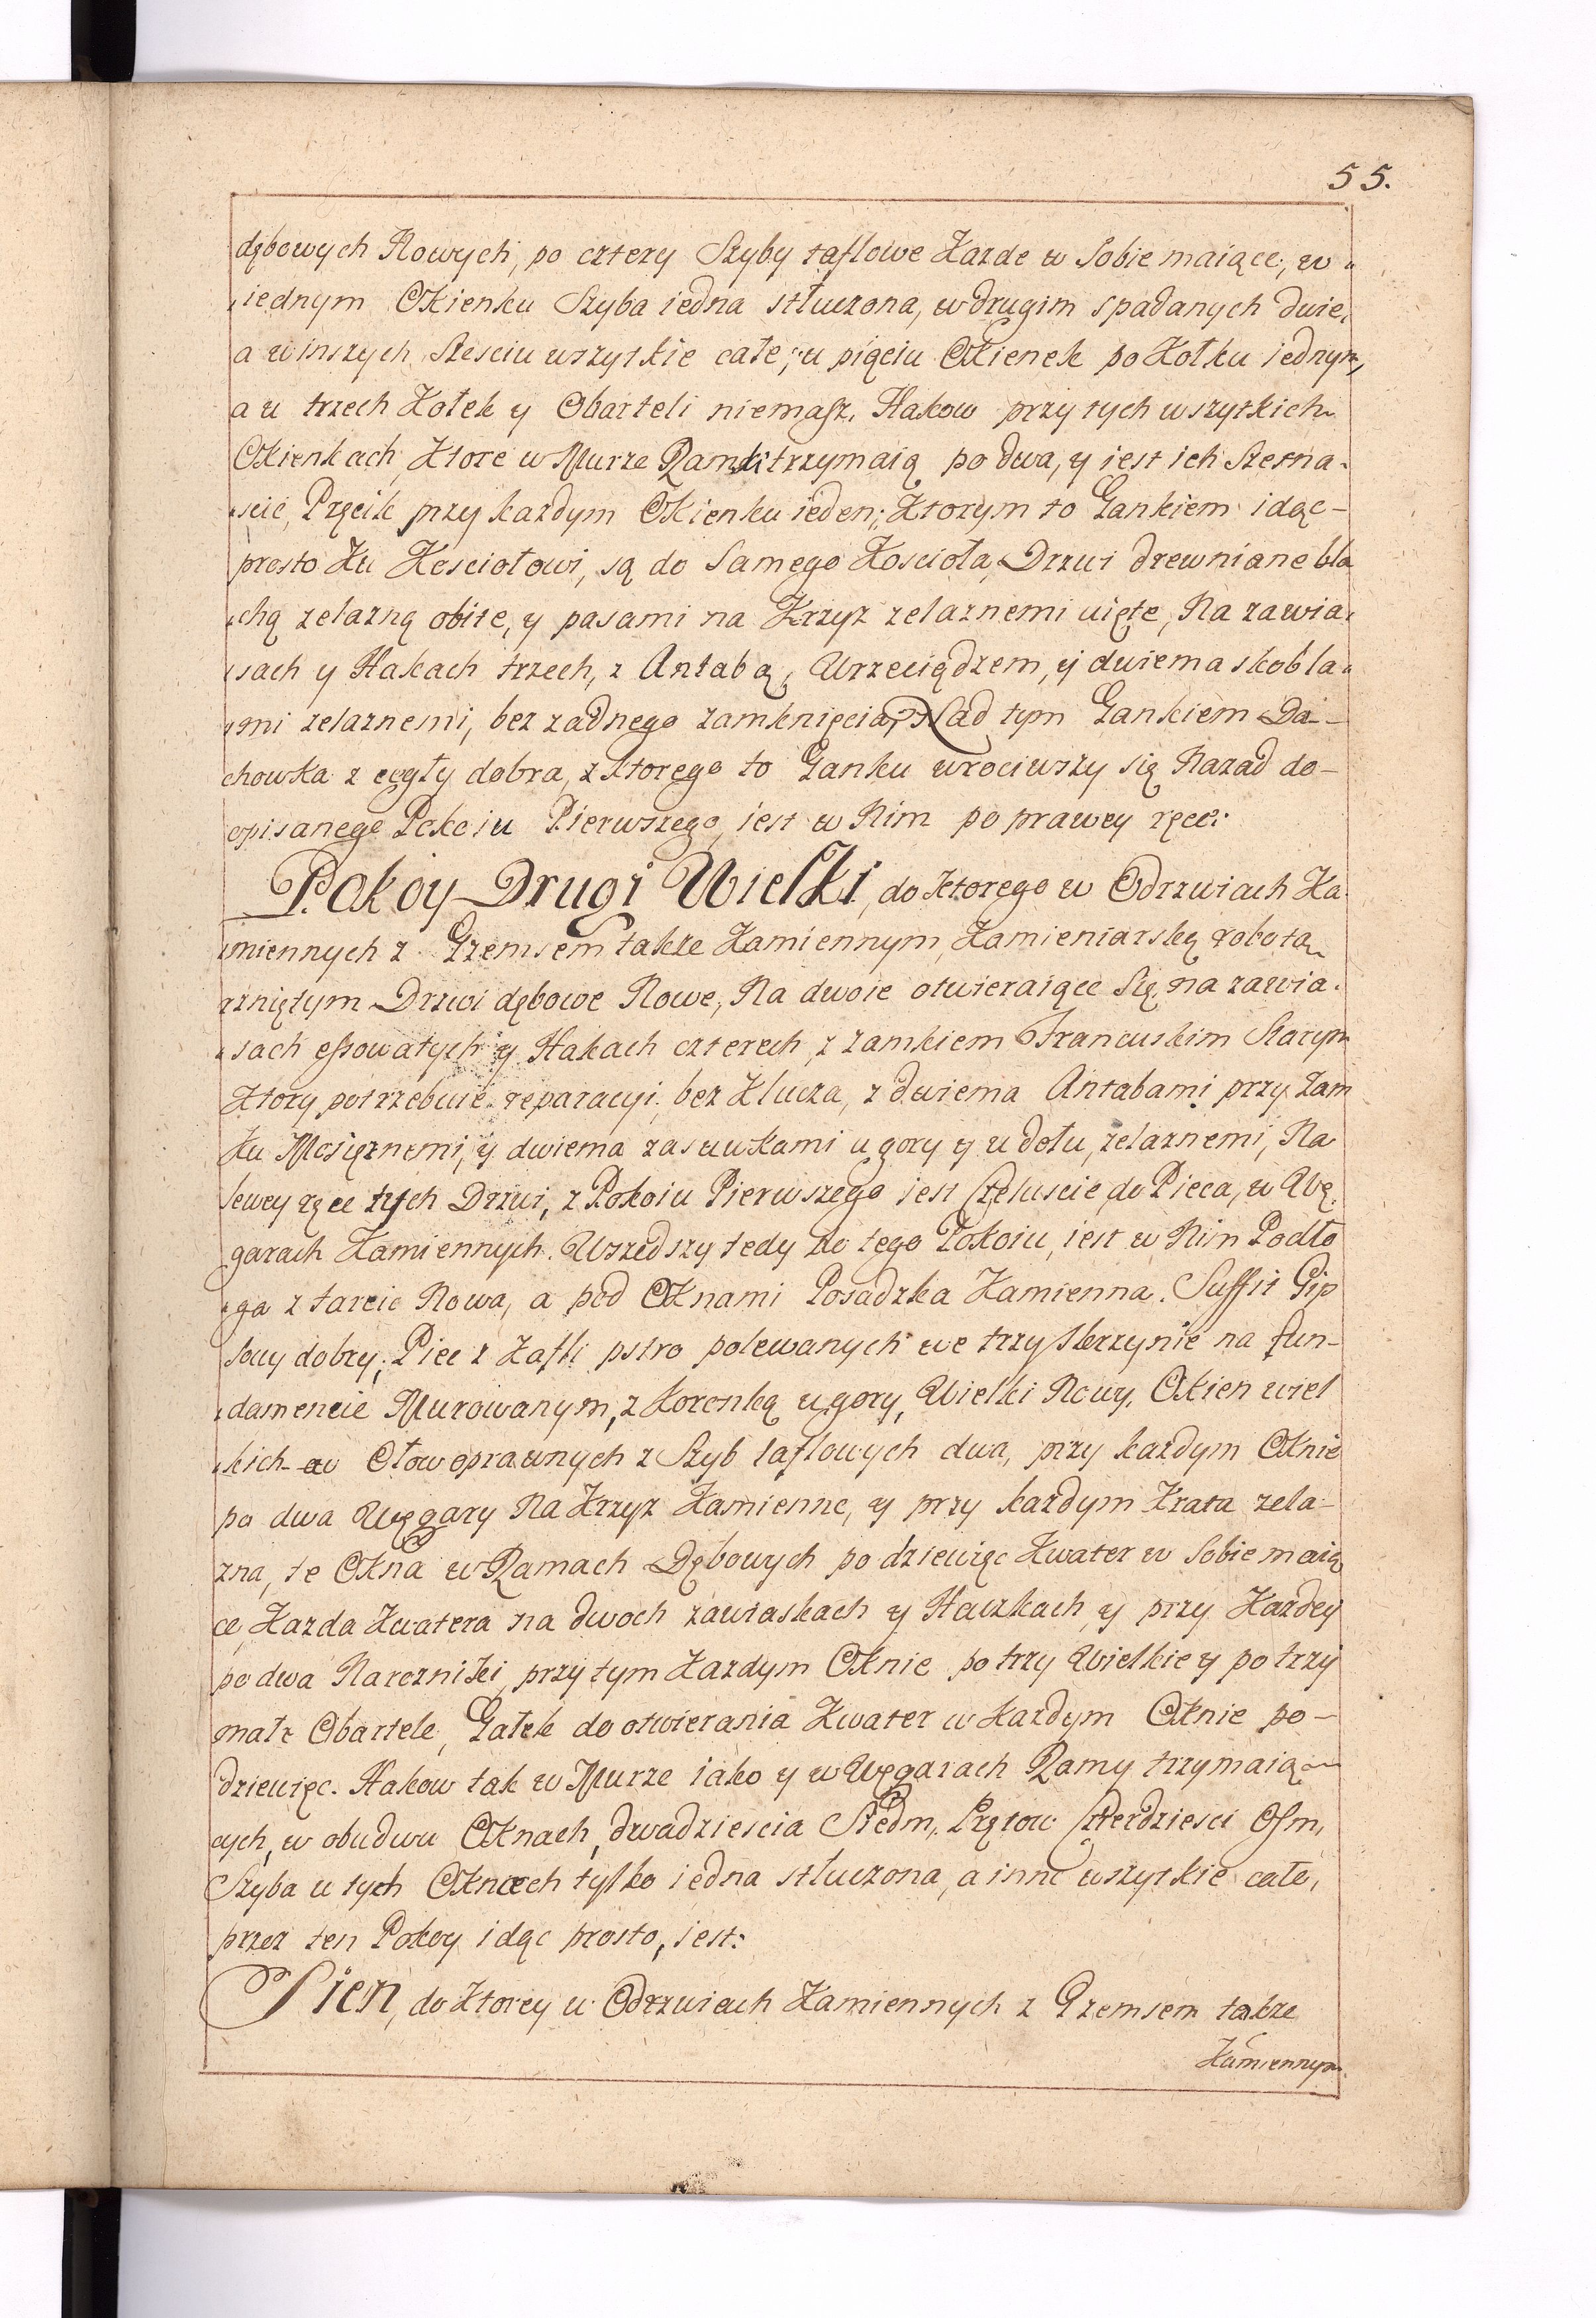 55.
dębowych Nowych, po cztery Szyby taflowe Kazde w Sobie maiące, w
iednym Okienku Szyba iedna stłuczona, w drugim spadanych dwie,
a winszych Szesciu wszytkie całe, u pięciu Okienek po Kołku iednym,
a u trzech Kołek y Obarteli niemasz. Hakow przy tych wszytkich
Okienkach, Ktore w Murze Ramki trzymaią po dwa, y iest ich Szesna-
scie, Pręcik przy kazdym Okienku ieden; Ktorym to Gankiem idąc-
prosto Ku Kosciołowi, są do Samego Koscioła Drzwi drewniane bla
chą zelazną obite, y pasami na Krzyz zelaznemi uięte, Na zawia-
sach y Hakach trzech, z Antabą, Wrzeciądzem, y dwiema skobla-
mi zelaznemi, bez zadnego zamknięcia, Nad tym Gankiem Da-
chowka z cegły dobra, z Ktorego to Ganku wrociwszy się Nazad do-
opisanego Pokoiu Pierwszego, iest w Nim po prawey ręce:
Pokoy Drugi Wielki, do Ktorego w Odrzwiach Ka-
miennych z Gzemsem takze Kamiennym, Kamieniarską robotą
rzniętym Drzwi dębowe Nowe, Na dwoie otwieraiące Się, na zawia-
sach essowatych y Hakach czterech, z zamkiem Francuskim Starym
Ktory potrzebuie reparacyi, bez Klucza, z dwiema Antabami przy Zam
ku Mosięznemi, y dwiema zasuwkami u gory y u dołu, zelaznemi, Na
lewey ręce tych Drzwi, z Pokoiu Pierwszego iest Czeluscie do Pieca, w Wę-
garach Kamiennych. Wszedszy tedy do tego Pokoiu, iest w Nim Podło
ga z tarcic Nowa, a pod Oknami Posadzka Kamienna. Suffit Gip
sowy dobry, Piec z Kafli pstro polewanych we trzy Skrzynie na fun-
damencie Murowanym, z Koronką u gory, Wielki Nowy, Okien wiel
kich w Ołow oprawnych z Szyb taflowych dwa, przy kazdym Oknie
po dwa Węgary Na Krzyz Kamienne, y przy kazdym Krata zela-
zna, te Okna w Ramach Dębowych po dziewięc Kwater w Sobie maią
ce, Kazda Kwatera na dwoch zawiaskach y Haczkach, y przy Kazdey
po dwa Narozniki, przy tym Kazdym Oknie po trzy Wielkie y po trzy
małe Obartele, Gałek do otwierania Kwater w Kazdym Oknie po-
dziewięc. Hakow tak w Murze iako y w Węgarach Ramy trzymaią-
cych, w obudwu Oknach, dwadziescia Siedm, Prętow Czterdziesci Osm,
Szyba u tych Oknach tylko iedna stłuczona, a inne wszytkie całe,
przez ten Pokoy idąc prosto, iest:
Sien, do Ktorey w Odrzwiach Kamiennych z Gzemsem takze
Kamiennym